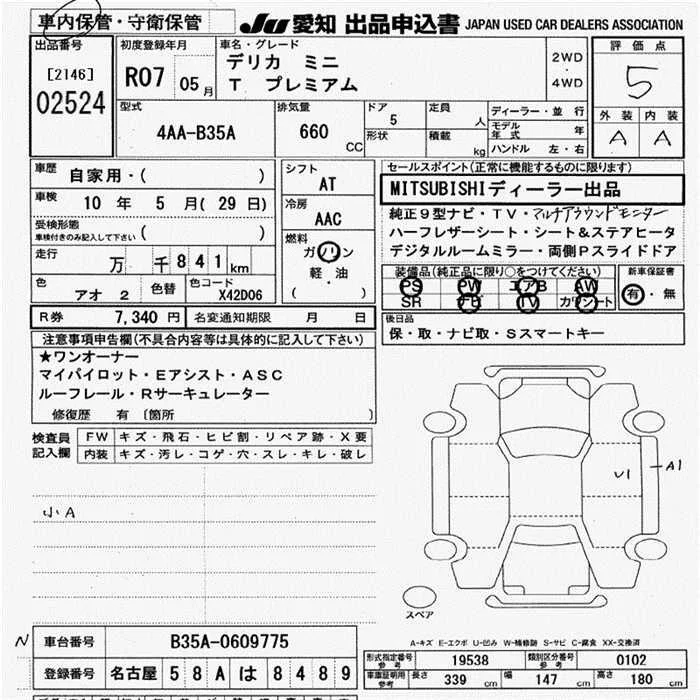 車内保管・守衛保管
JU 愛知 出品申込書 JAPAN USED CAR DEALERS ASSOCIATION
出品番号
[2146]
02524
初度登録年月
R07 05月
車名・グレード
デリカ ミニ
T プレミアム
2WD
・
4WD
評価点
5
外装 内装
A A
型式
4AA-B35A
排気量
660 CC
ドア
5
形状
定員
人
積載
kg
ディーラー・並行
モデル年式 年
ハンドル 左・右
車歴
自家用・( )
車検
10 年 5 月( 29 日)
受検形態
車検付きのみ記入して下さい ( )
走行
万 千841km
色
アオ 2
色替
色コード
X42D06
シフト
AT
冷房
AAC
燃料
ガソリン
軽・油
( )
セールスポイント(正常に機能するものに限ります)
MITSUBISHIディーラー出品
純正9型ナビ・TV・マルチアラウンドモニター
ハーフレザーシート・シート&ステアヒータ
デジタルルームミラー・両側Pスライドドア
装備品(純正品に限り○をつけてください)
PS PW エアB AW
SR TV カワシート
新車保証書
有・無
R券 7,340 円 名変通知期限 月 日
後日品
保・取・ナビ取・Sスマートキー
注意事項申告欄(不具合内容等は具体的に記入して下さい)
★ワンオーナー
マイパイロット・Eアシスト・ASC
ルーフレール・Rサーキュレーター
修復歴 有 〔箇所 〕
検査員記入欄
FW キズ・飛石・ヒビ割・リペア跡・X要
内装 キズ・汚レ・コゲ・穴・スレ・キレ・破レ
小A
U1
A1
スペア
N 車台番号 B35A-0609775
登録番号 名古屋 58A は 8489
A-キズ E-エクボ U-凹み W-補修跡 S-サビ C-腐食 XX-交換済
形式指定番号 参考 19538 類別区分番号 参考 0102
車庫証明用 参考 長さ 339 cm 幅 147 cm 高さ 180 cm